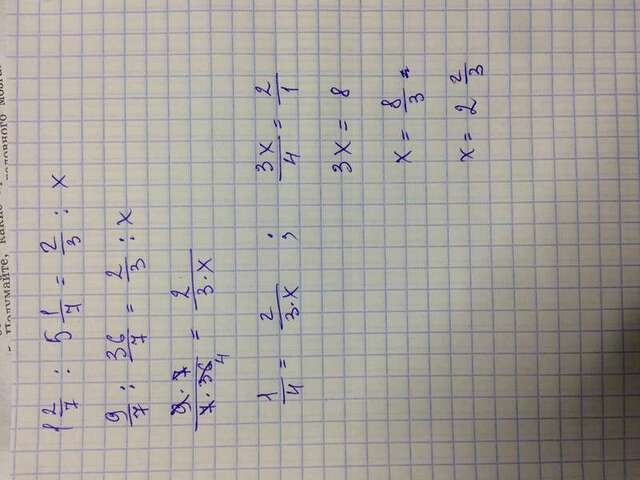 Подумайте, какие
головного мозга
1 2/7 : 5 1/7 = 2/3 : x
9/7 : 36/7 = 2/3 : x
9·7/7·36 4 = 2/3·x
1/4 = 2/3·x ; 3x/4 = 2/1
3x = 8
x = 8/3 =
x = 2 2/3